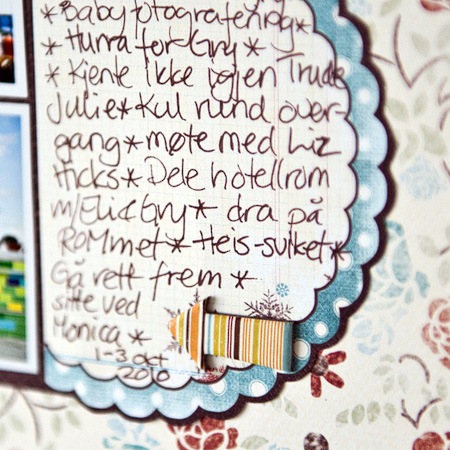 * Babyfotografering *
* Hurra for Gry *
* Kjente ikke igjen Trude
Julie * Kul rund over-
gang * møte med Liz
Hicks * Dele hotellrom
m/Eli & Gry * dra på
ROMmet * Heis-sviket *
Gå rett frem *
sitte ved
Monica *
1-3 okt
2010